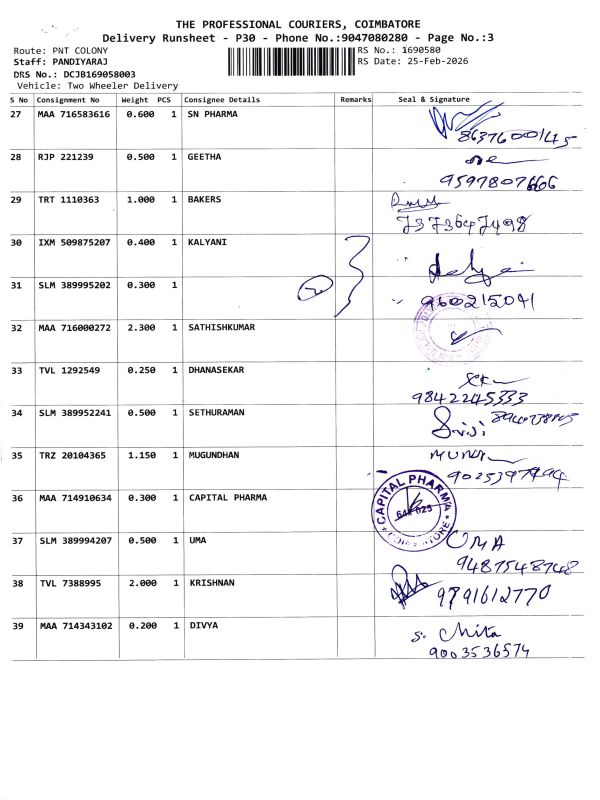 THE PROFESSIONAL COURIERS, COIMBATORE
Delivery Runsheet - P30 - Phone No.:9047080280 - Page No.:3
Route: PNT COLONY RS No.: 1690580
Staff: PANDIYARAJ RS Date: 25-Feb-2026
DRS No.: DCJB169058003
Vehicle: Two Wheeler Delivery
S No Consignment No Weight PCS Consignee Details Remarks Seal & Signature
27 MAA 716583616 0.600 1 SN PHARMA
8637600145
28 RJP 221239 0.500 1 GEETHA
9597807666
29 TRT 1110363 1.000 1 BAKERS
7373647498
30 IXM 509875207 0.400 1 KALYANI
31 SLM 389995202 0.300 1
9600215041
32 MAA 716000272 2.300 1 SATHISHKUMAR
33 TVL 1292549 0.250 1 DHANASEKAR
9842245333
34 SLM 389952241 0.500 1 SETHURAMAN
35 TRZ 20104365 1.150 1 MUGUNDHAN
36 MAA 714910634 0.300 1 CAPITAL PHARMA
CAPITAL PHARMA
COIMBATORE
37 SLM 389994207 0.500 1 UMA
UMA
9487548748
38 TVL 7388995 2.000 1 KRISHNAN
9791612770
39 MAA 714343102 0.200 1 DIVYA
S. Chita
9003536574